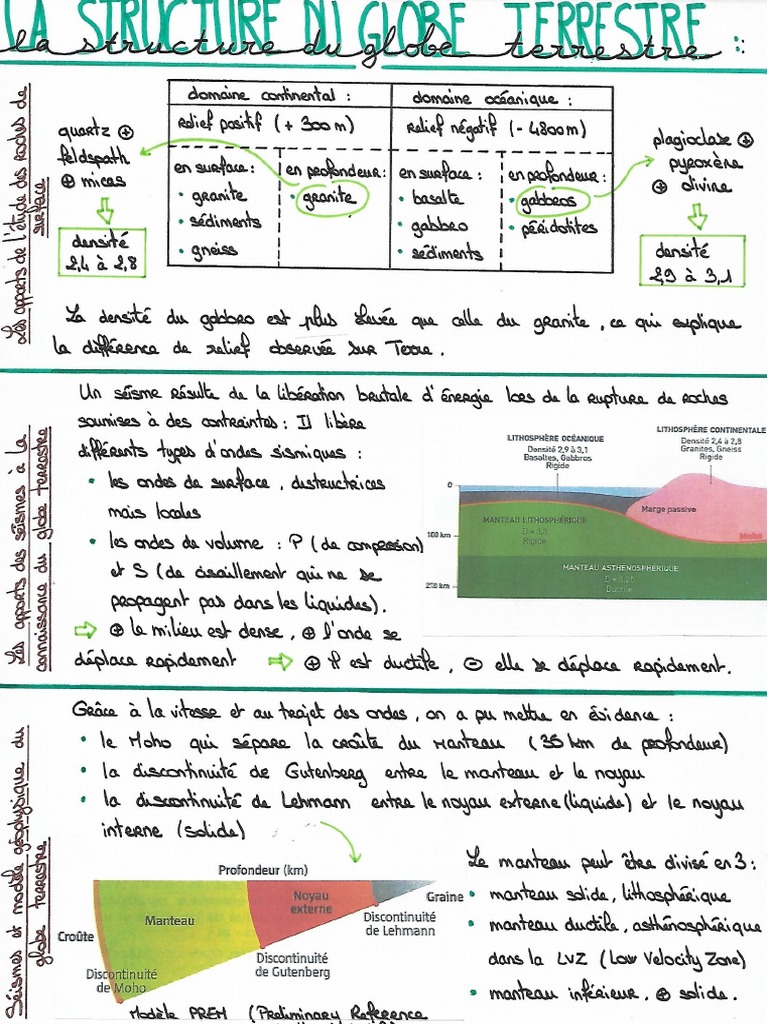 LA STRUCTURE DU GLOBE TERRESTRE
la structure du globe terrestre :
Les apports de l'étude des roches de
surface
quartz ⊕
feldspath
⊕ micas
densité
2,4 à 2,8
domaine continental :
relief positif (+ 300 m)
en surface :
• granite
• sédiments
• gneiss
en profondeur :
• granite
domaine océanique :
relief négatif (- 4800 m)
en surface :
• basalte
• gabbro
• sédiments
en profondeur :
• gabbros
• péridotites
plagioclase ⊕
pyroxène
⊕ olivine
densité
2,9 à 3,1
La densité du gabbro est plus élevée que celle du granite, ce qui explique
la différence de relief observée sur Terre.
Les apports des séismes à la
connaissance du globe terrestre
Un séisme résulte de la libération brutale d'énergie lors de la rupture de roches
soumises à des contraintes : Il libère
différents types d'ondes sismiques :
• les ondes de surface, destructrices
mais locales
• les ondes de volume : P (de compression)
et S (de cisaillement qui ne se
propagent pas dans les liquides).
⇨ ⊕ le milieu est dense, ⊕ l'onde se
déplace rapidement ⇨ ⊕ il est ductile, ⊖ elle se déplace rapidement.
LITHOSPHÈRE OCÉANIQUE
Densité 2,9 à 3,1
Basaltes, Gabbros
Rigide
LITHOSPHÈRE CONTINENTALE
Densité 2,4 à 2,8
Granites, Gneiss
Rigide
0
100 km
Marge passive
Moho
MANTEAU LITHOSPHÉRIQUE
D = 3,3
Rigide
MANTEAU ASTHÉNOSPHÉRIQUE
D = 3,25
Ductile
Séismes et modèle géophysique du
globe terrestre
Grâce à la vitesse et au trajet des ondes, on a pu mettre en évidence :
• le Moho qui sépare la croûte du manteau (35 km de profondeur)
• la discontinuité de Gutenberg entre le manteau et le noyau
• la discontinuité de Lehmann entre le noyau externe (liquide) et le noyau
interne (solide)
Profondeur (km)
Croûte
Manteau
Noyau
externe
Graine
Discontinuité
de Moho
Discontinuité
de Gutenberg
Discontinuité
de Lehmann
Modèle PREM (Preliminary Reference
Le manteau peut être divisé en 3 :
• manteau solide, lithosphérique
• manteau ductile, asthénosphérique
dans la LVZ (Low Velocity Zone)
• manteau inférieur, ⊕ solide.